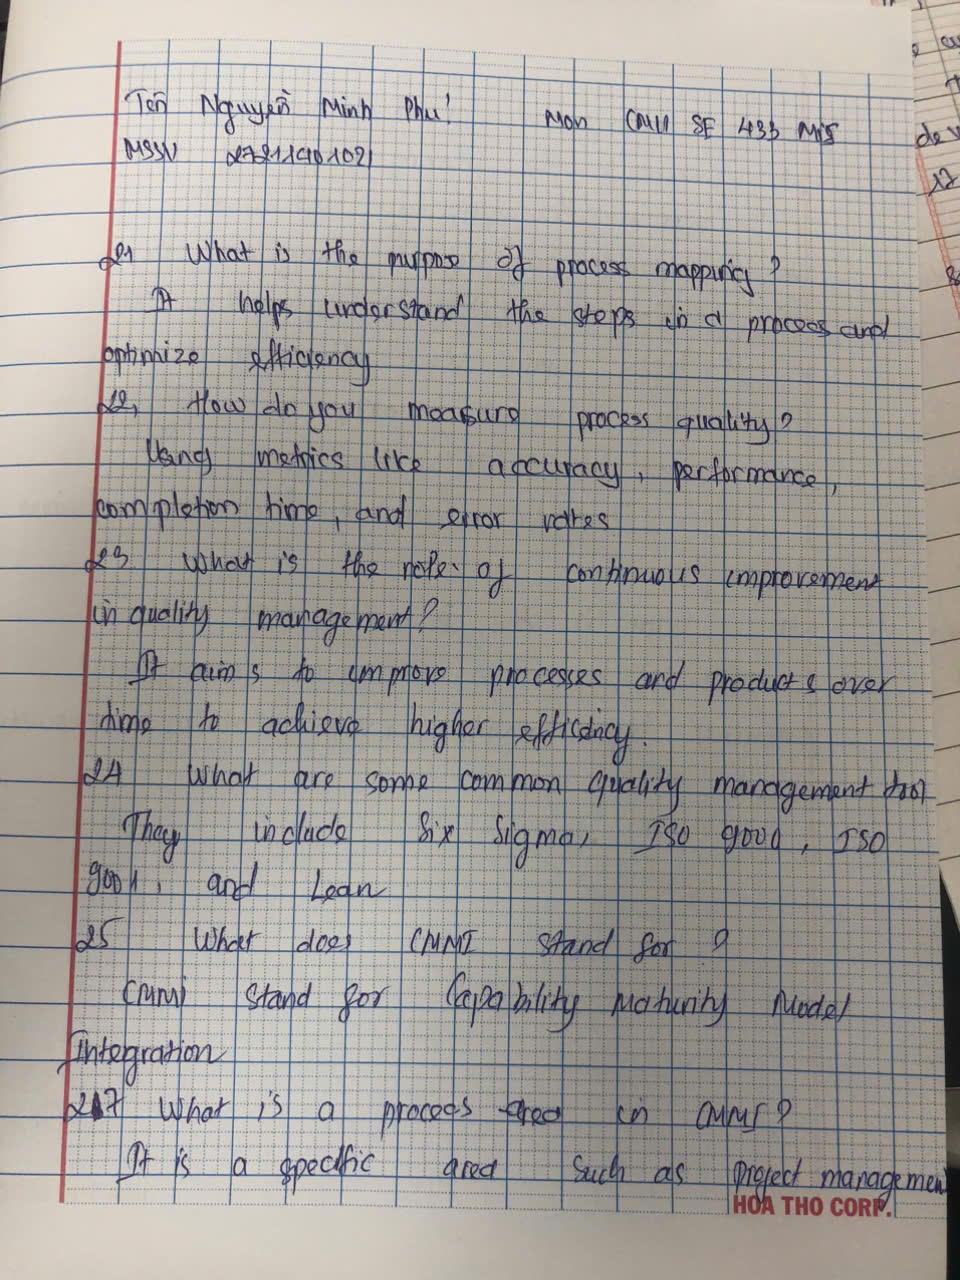 Tên Nguyễn Minh Phú Mon CMU SE 433 MIS
MSSV
21 What is the purpose of process mapping?
It helps understand the steps in a process and
optimize efficiency
22, How do you measure process quality?
Using metrics like accuracy, performance,
completion time, and error rates
23 What is the role of continuous improvement
in quality management?
It aims to improve processes and products over
time to achieve higher efficiency.
24 What are some common quality management tool
They include Six Sigma, ISO 9000, ISO
9001, and Lean
25 What does CMMI stand for?
CMMI stand for Capability Maturity Model
Integration
27 What is a process area in CMMI?
It is a specific area such as project managemen
HOA THO CORP.
de
17